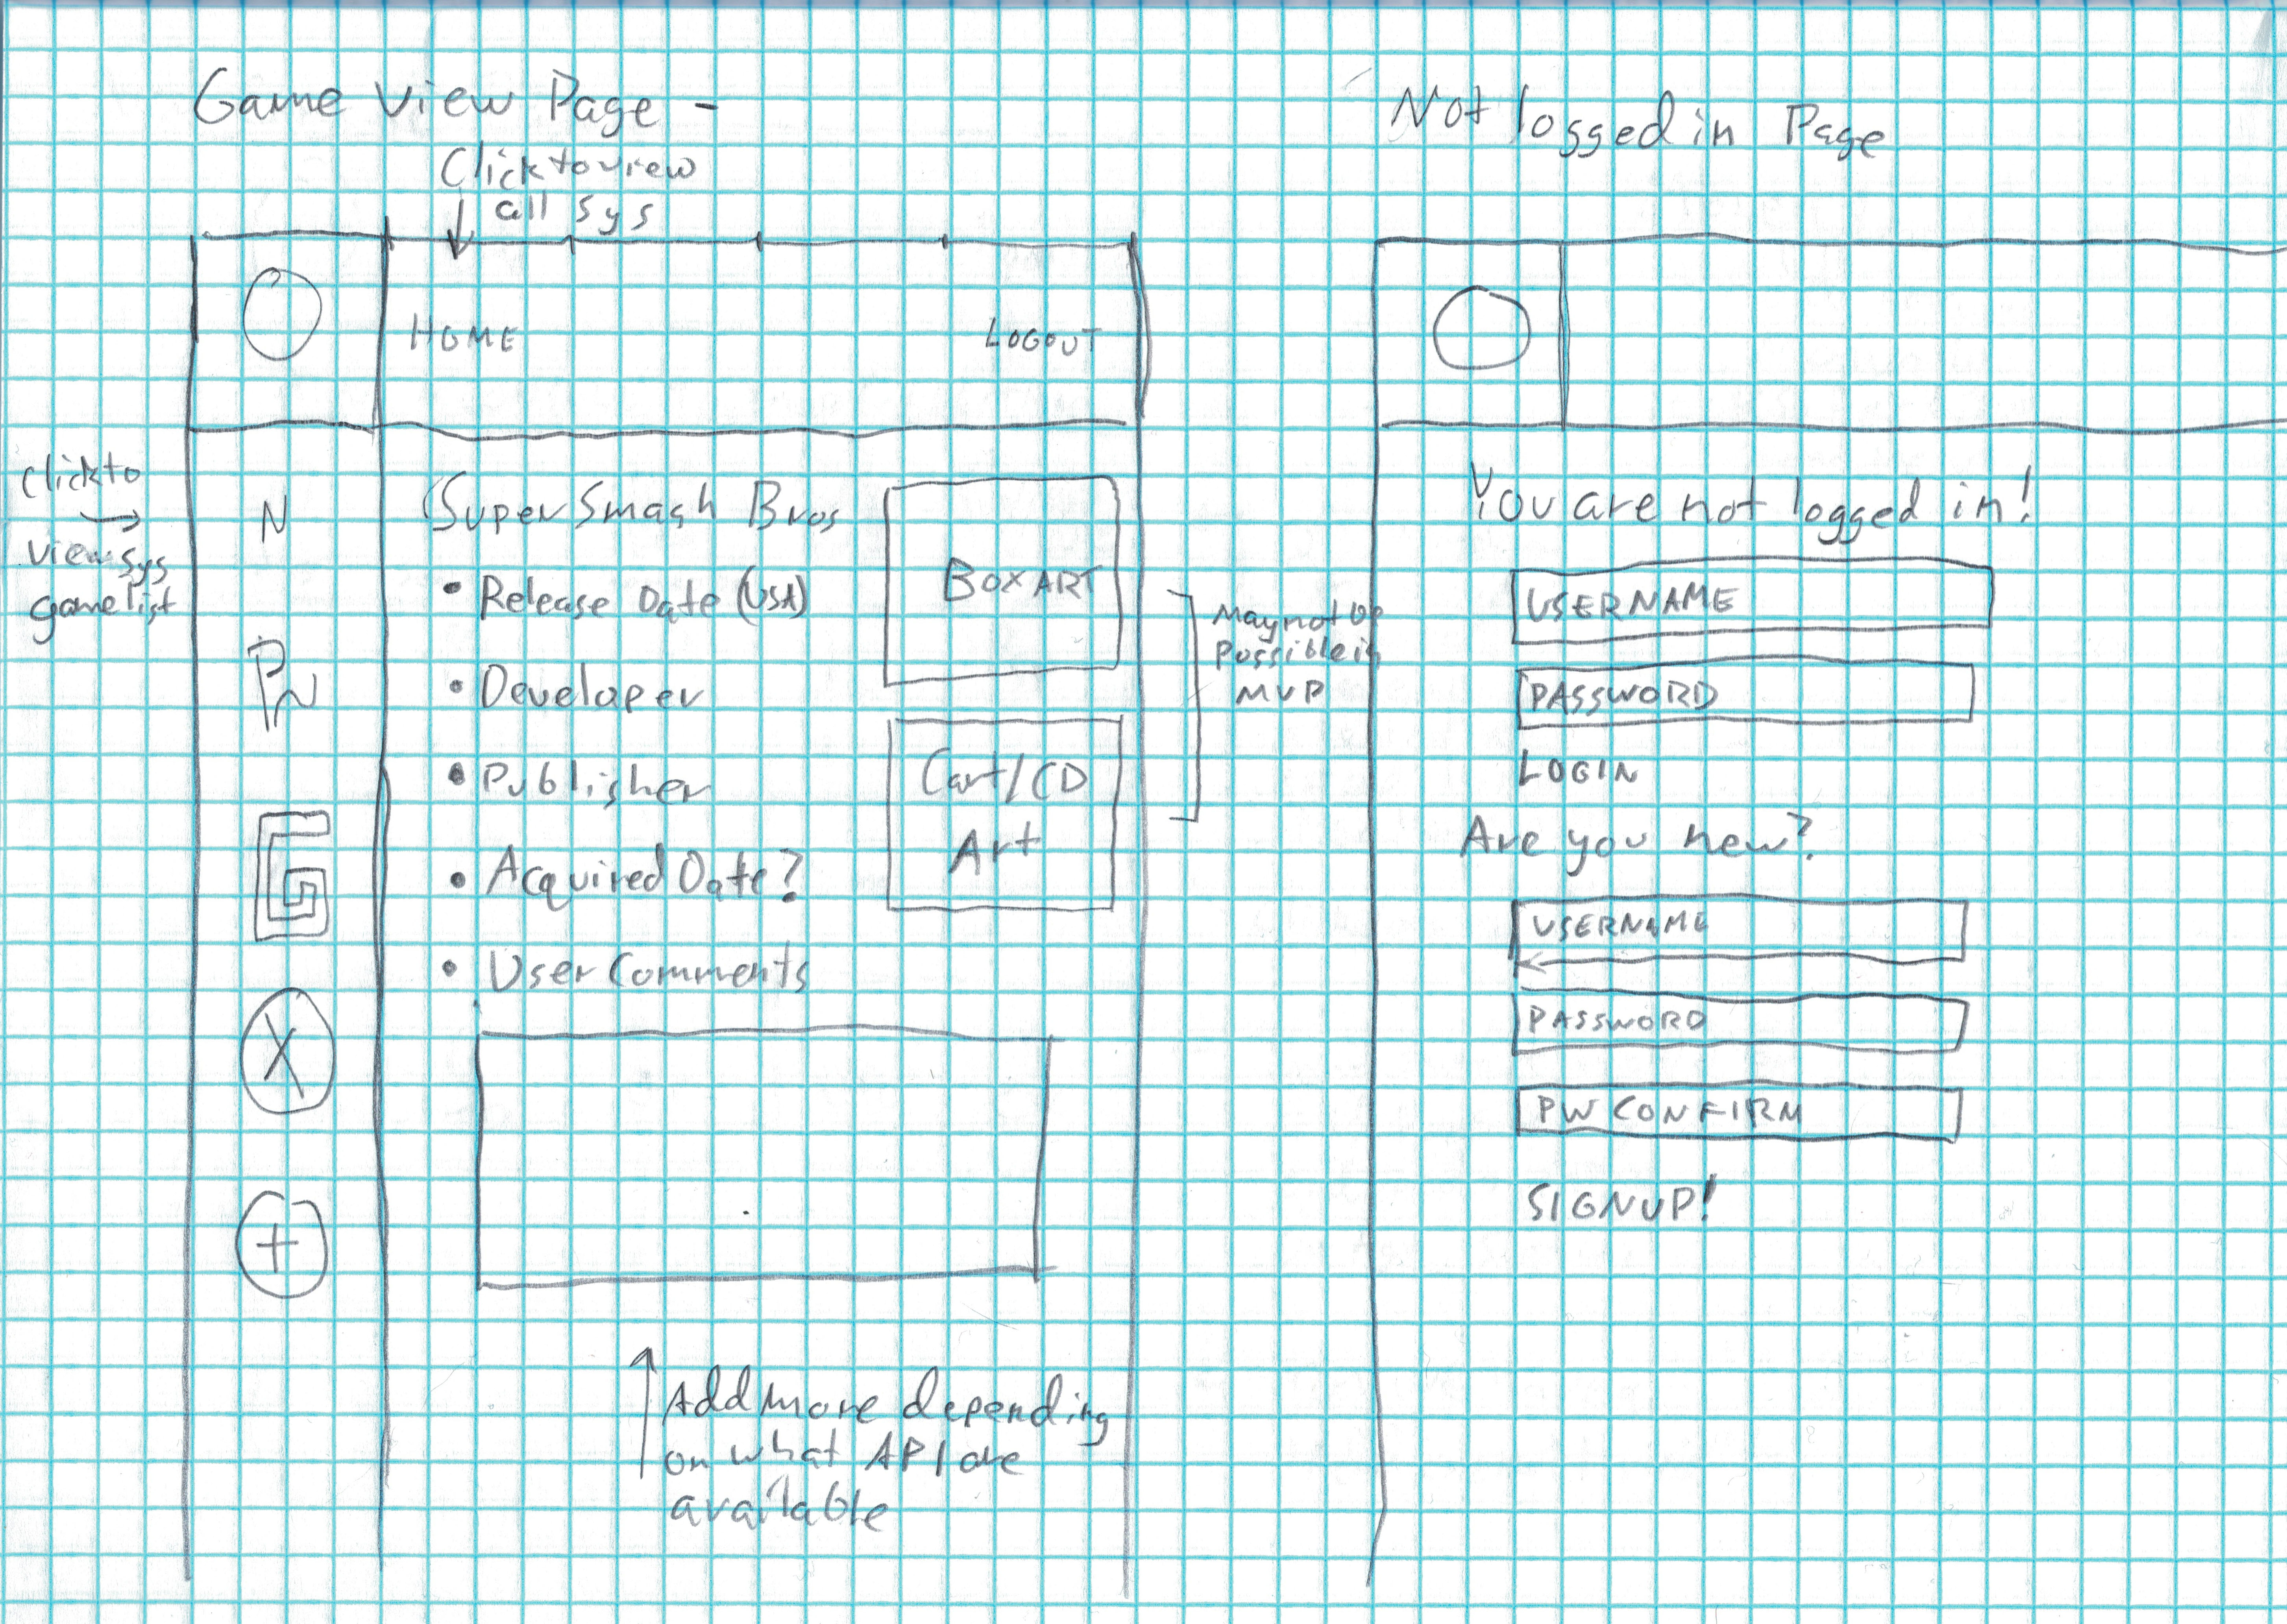 Game View Page -
Click to view
all sys
HOME
LOGOUT
Click to
view sys
game list
N
X
+
Super Smash Bros
• Release Date (USA)
• Developer
• Publisher
• Acquired Date?
• User Comments
BOX ART
Cart/CD
Art
May not be
Possible in
MVP
Add more depending
on what API are
available
Not logged in Page
You are not logged in!
USERNAME
PASSWORD
LOGIN
Are you new?
USERNAME
PASSWORD
PW CONFIRM
SIGNUP!